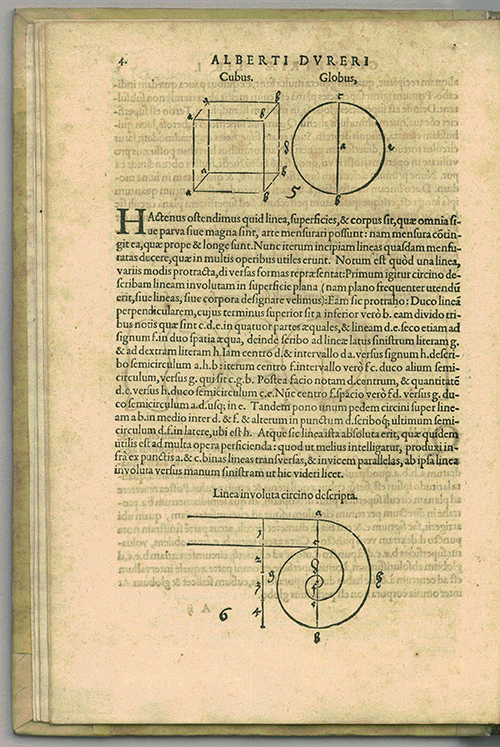 4.
ALBERTI DVRERI
Cubus. Globus,
5
HActenus ostendimus quid linea, superficies, & corpus sit, quæ omnia si-
ue parva siue magna sint, arte mensurari possunt: nam mensura cōtin-
git ea, quæ prope & longe sunt. Nunc iterum incipiam lineas quasdam mensu-
ratas ducere, quæ in multis operibus utiles erunt. Notum est quòd una linea,
variis modis protracta, diversas formas repræsentat: Primum igitur circino de-
scribam lineam involutam in superficie plana (nam plano frequenter utendū
erit, siue lineas, siue corpora designare velimus): Eam sic protraho: Duco lineā
perpendicularem, cujus terminus superior sit a inferior verò b. eam divido tri-
bus notis quæ sint c.d.e. in quatuor partes æquales, & lineam d.e. seco etiam ad
signum f. in duo spatia æqua, deinde scribo ad lineæ latus sinistrum literam g.
& ad dextrám literam h. Iam centro d. & intervallo d a. versus signum h. descri-
bo semicirculum a.h.b: iterum centro f. intervallo verò f c. duco alium semi-
circulum, versus g. qui sit c.g.b. Postea facio notam d. centrum, & quantitatē
d.e. versus h. duco semicirculum c.e. Nūc centro f. spacio verò f d. versus g. du-
co semicirculum a d. usq; in e. Tandem pono unum pedem circini super line-
am a b. in medio inter d. & f. & alterum in punctum d. scriboq; ultimum semi-
circulum d.f. in latere, ubi est h. Atque sic linea ista absoluta erit, quæ quidem
utilis est ad multa opera perficienda: quod ut melius intelligatur, produxi in-
frà ex punctis a. & c. binas lineas transversas, & invicem parallelas, ab ipsa linea
involuta versus manum sinistram ut hic videri licet.
Linea involuta circino descripta.
a
1
c
2
g
3
4
6
b